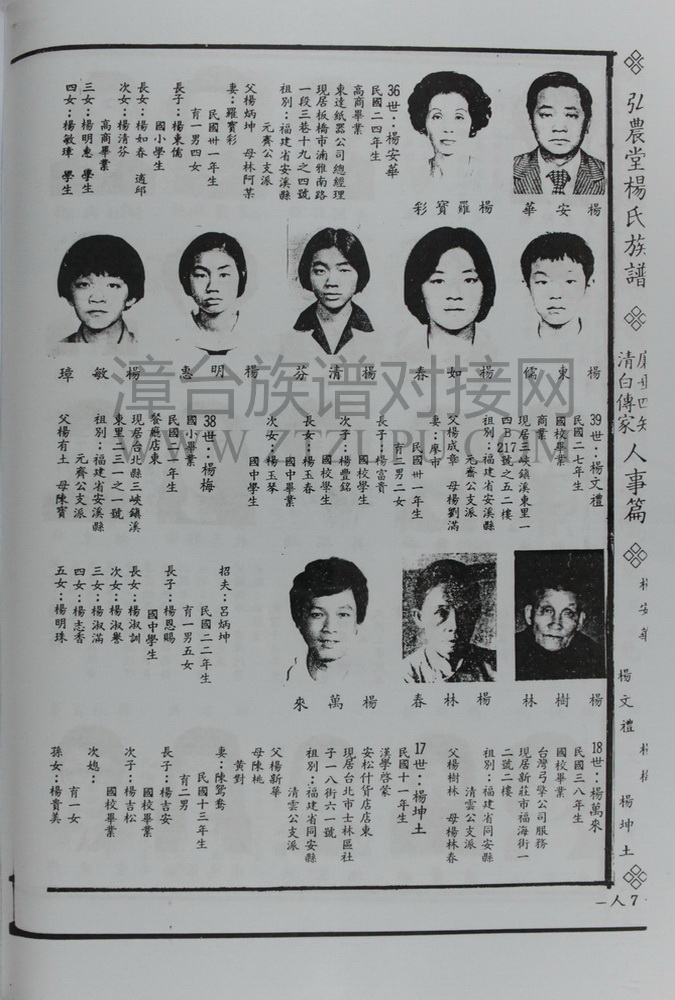 弘農堂楊氏族譜
清白傳家
人事篇
楊文禮
楊坤土
一人7
楊安華
楊羅寶彩
36世：楊安華
民國二四年生
高商畢業
東達紙器公司總經理
現居板橋市滴雅南路
一段三巷十九之四號
祖別：福建省安溪縣
元齊公支派
父楊炳坤 母林阿菜
妻：羅寶彩
民國卅一年生
育一男四女
長子：楊東儒
國小學生
長女：楊如春 適邱
次女：楊清芬
高商畢業
三女：楊明惠 學生
四女：楊敏璋 學生
楊東儒
楊如春
楊清芬
楊明惠
楊敏璋
39世：楊文禮
民國二七年生
國校畢業
商業
現居三峽鎮溪東里一
四B217號之五二樓
祖別：福建省安溪縣
元齊公支派
父楊成章 母楊劉滿
妻：廖市
民國卅一年生
育二男二女
長子：楊富貴
國校學生
次子：楊豐銘
國校學生
長女：楊玉春
國中畢業
次女：楊玉琴
國中學生
38世：楊梅
國小畢業
民國二一年生
餐廳店東
現居台北縣三峽鎮溪
東里二三一之一號
祖別：福建省安溪縣
元齊公支派
父楊有土 母陳寶
招夫：呂炳坤
民國二二年生
育一男五女
長子：楊恩賜
國中學生
長女：楊淑訓
次女：楊淑譽
三女：楊淑滿
四女：楊志香
五女：楊明珠
楊樹林
楊林春
楊萬來
18世：楊萬來
民國三八年生
國校畢業
台灣弓擎公司服務
現居新莊市福海街一
二號二樓
祖別：福建省同安縣
清雲公支派
父楊樹林 母楊林春
17世：楊坤土
民國十一年生
漢學啓蒙
安松什貨店店東
現居台北市士林區社
子一八街六一號
祖別：福建省同安縣
清雲公支派
父楊新華
母陳桃
黃對
妻：陳鴛鴦
民國十三年生
育二男
長子：楊吉安
國校畢業
次子：楊吉松
國校畢業
次媳：
育一女
孫女：楊貴美
漳台族谱对接网
WWW.ZTZUPU.COM